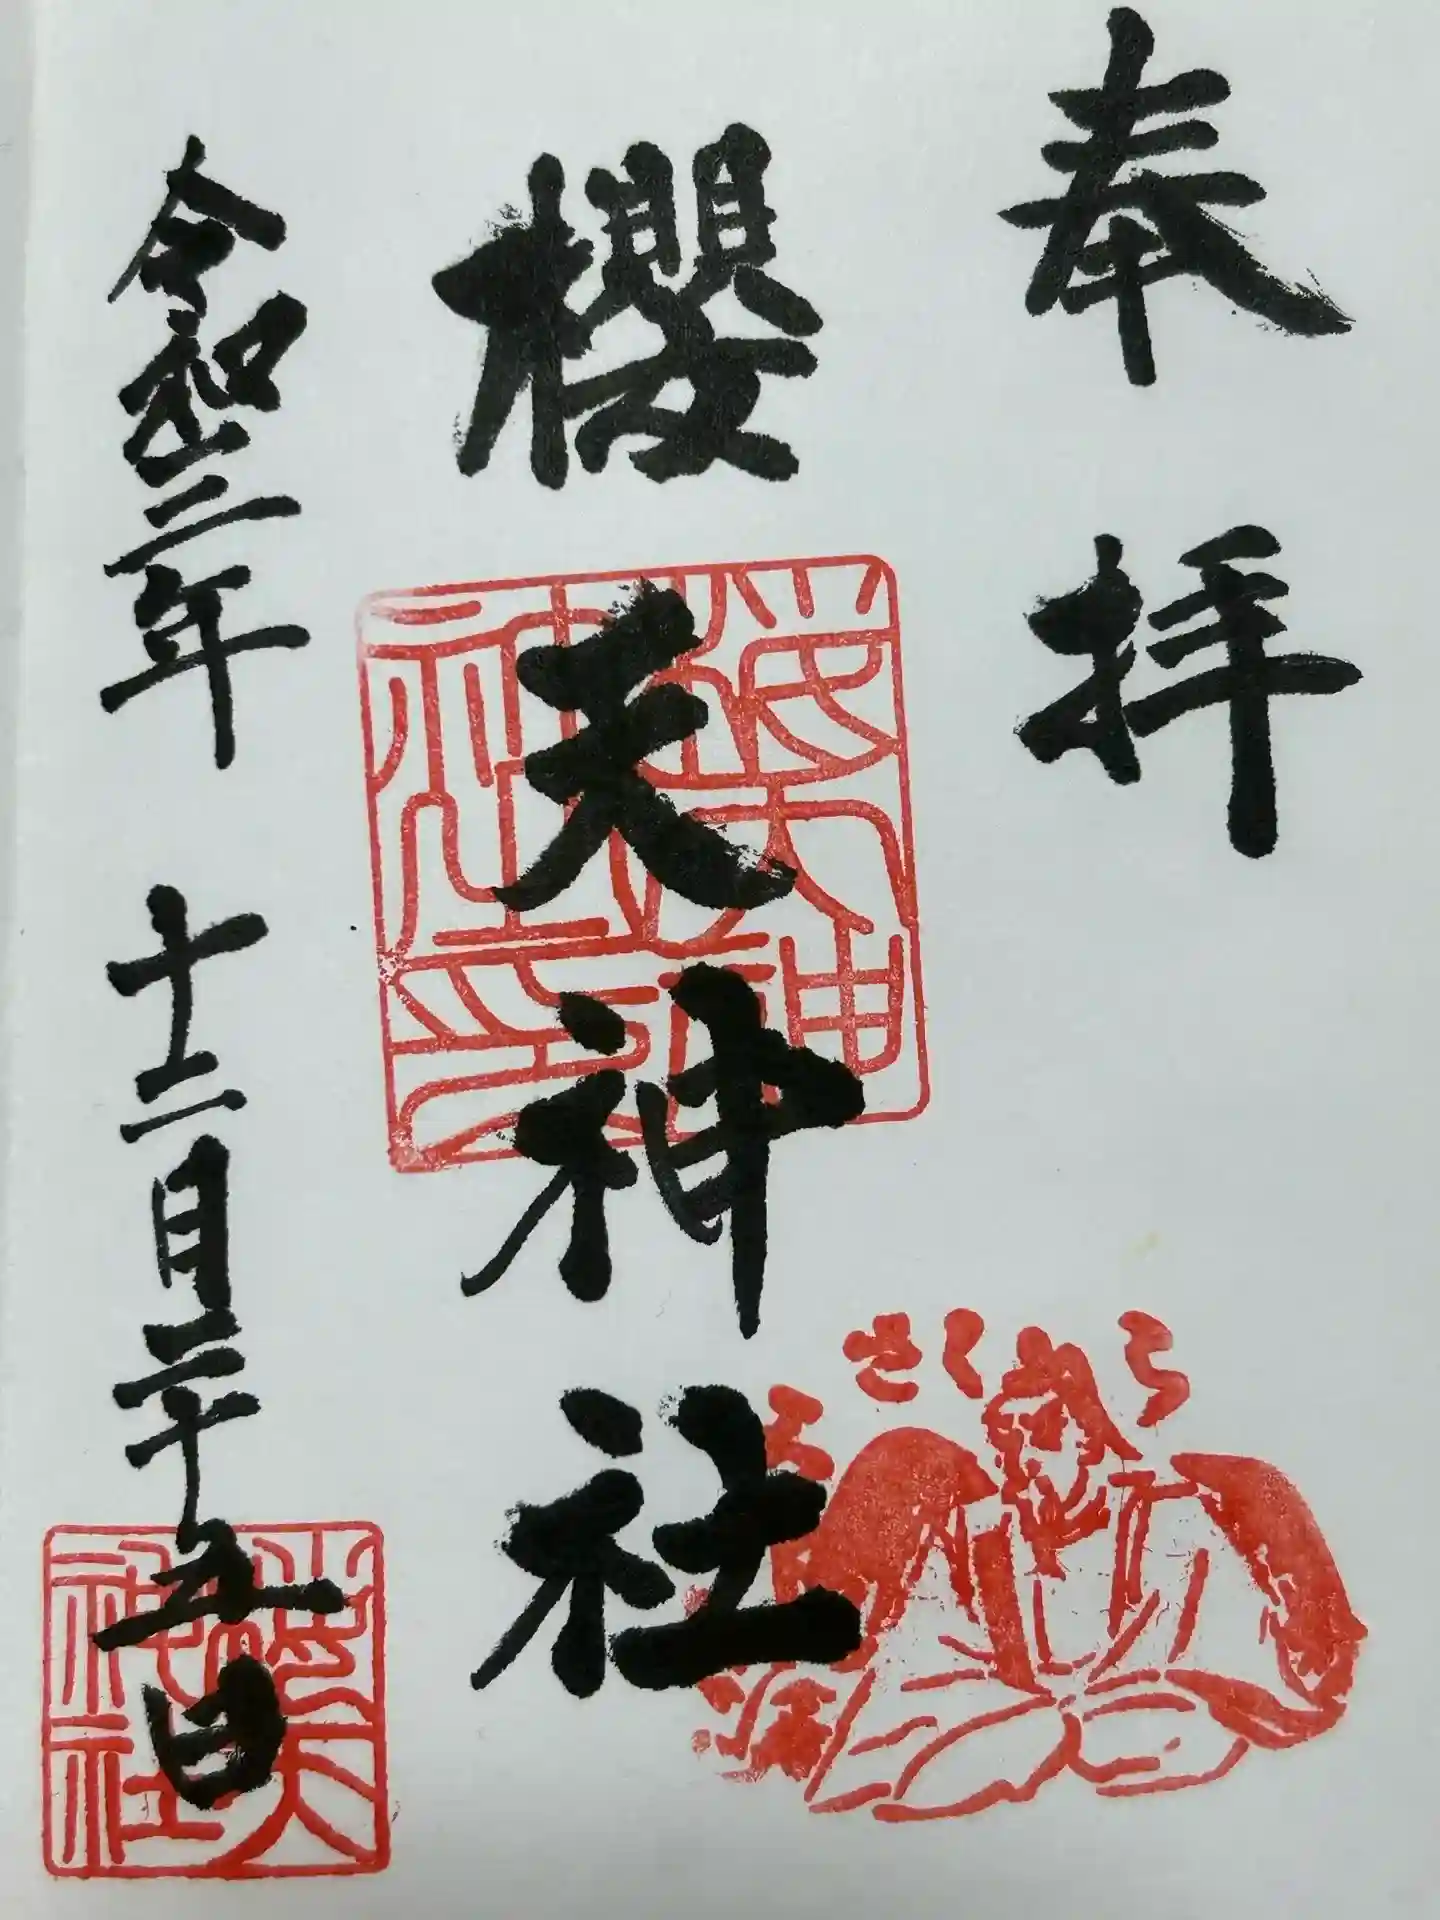 奉拝
櫻天神社
令和二年 十二月二十五日
櫻天神社印
櫻天神社
さくら